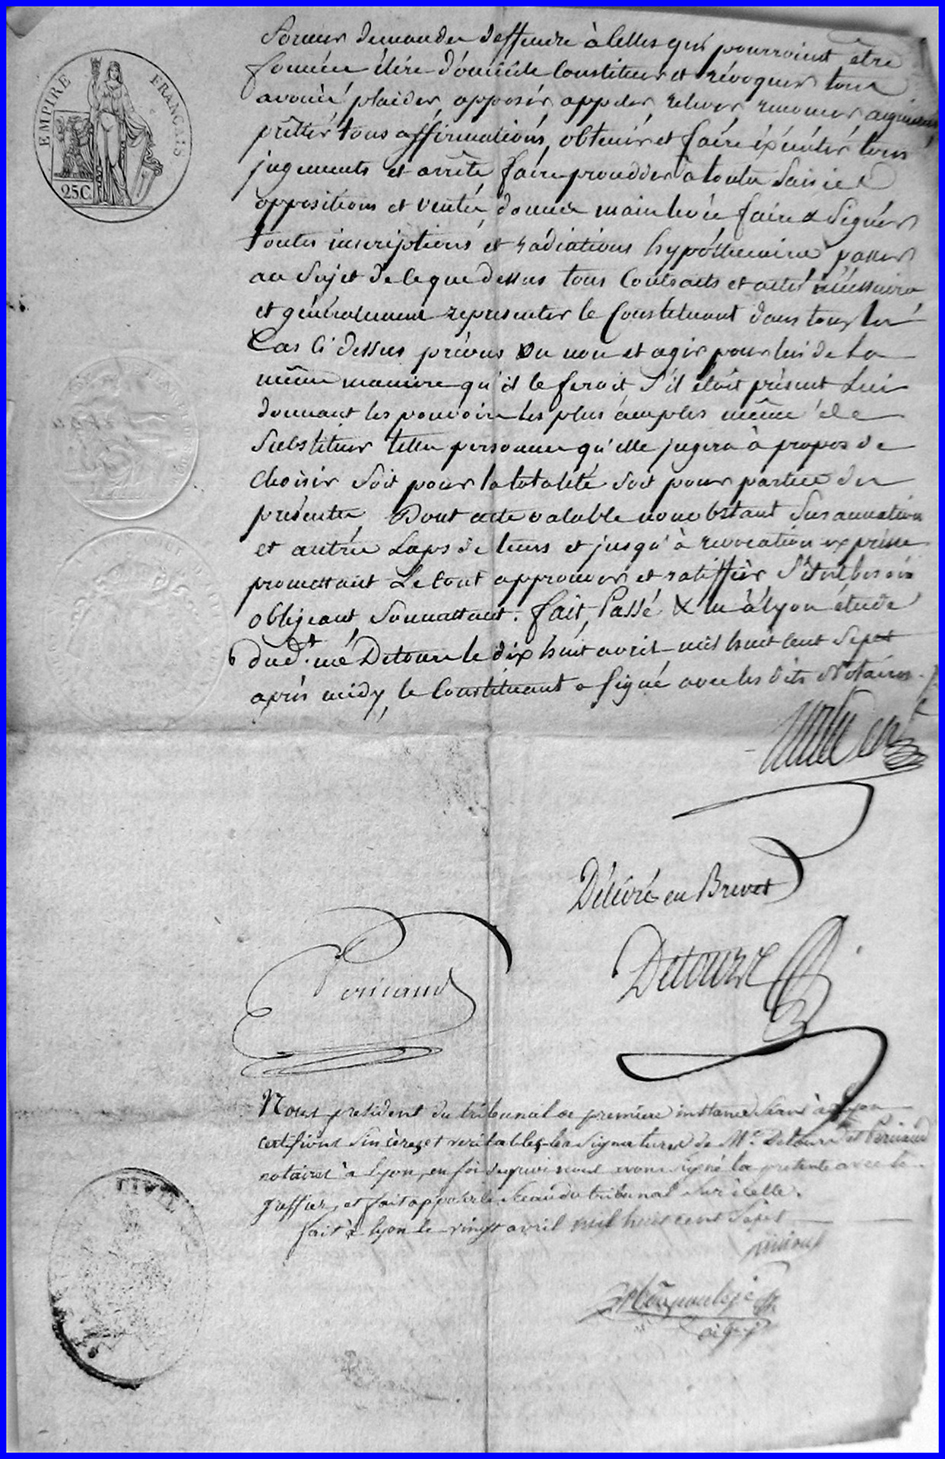 EMPIRE FRANÇAIS
25C
former demandes deffendre à celles qui pourroient être
formées élire domicile Constituer et révoquer tous
avoués plaider, opposer, appeler relever renoncer
prêtter tous affirmations, obtenir et faire éxécuter tous
jugements et arrêts faire procedder à toutes Saisies
oppositions et ventes, donner main levée faire & Signer
toutes inscriptions et radiations hypothécaires passer
au Sujet de ce que dessus tous Contracts et actes nécessaires
et généralement representer le Constituant dans tous les
Cas ci dessus prévus ou non et agir pour lui de la
même maniere qu'il le feroit S'il étoit présent Lui
donnant les pouvoirs les plus amples même de
Substituer telles personnes qu'elle jugera à propos de
Choisir Soit pour la totalité Soit pour partie des
présentes Dont acte valable nonobstant Surannation
et autres Laps de tems et jusqu'à revocation expresse
promettant Le tout approuver et ratiffier S'il est besoin
obligeant, Soumettant. fait, Passé & lu à Lyon étude
dud.t me Detourre le dix huit avril mil huit cent Sept
après midy, le Constituant a Signé avec les dits Notaires.
Délivré en Brevet
Detourre
Pericaud
Nous president du tribunal de premiere instance Séant à Lyon
certifions Sinceres et veritables les Signatures de Mrs. Detourre et Pericaud
notaires à Lyon, en foi de quoi nous avons Signé la presente avec le
greffier, et fait apposer le Sceau du tribunal Sur icelle.
fait à Lyon le vingt avril mil huit cent Sept